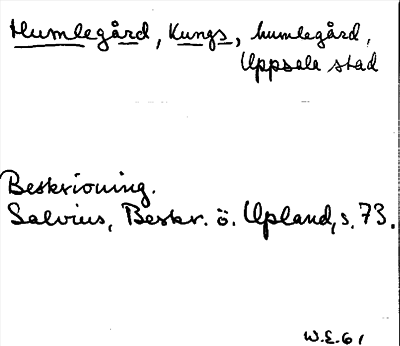 Humlegård, Kungs, humlegård,
Uppsala stad
Beskrivning.
Salvius, Beskr. ö. Upland, s. 73.
W.E.61